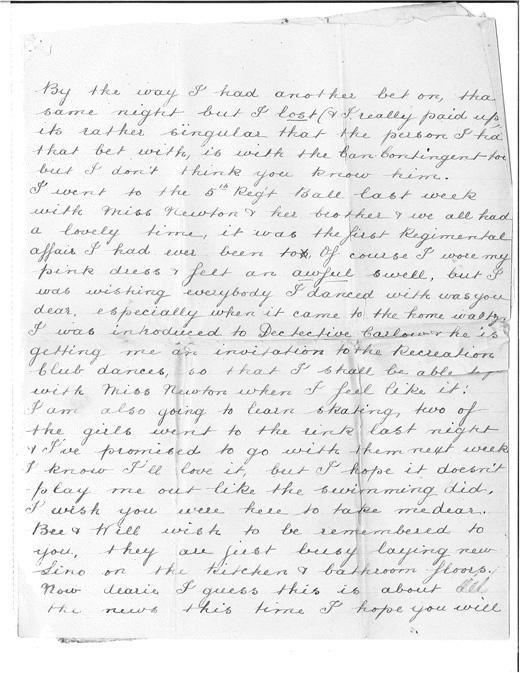 By the way I had another bet on, tha
same night but I lost (& I really paid up
its rather singular that the person I had
that bet with, is with the Can Contingent too
but I don't think you know him.
I went to the 5th Reg't Ball last week
with Miss Newton & her brother & we all had
a lovely time, it was the first Regimental
affair I had ever been to. Of course I wore my
pink dress & felt an awful swell, but I
was wishing everybody I danced with was you
dear, especially when it came to the home waltz
I was introduced to Dectective Carlow & he is
getting me an invitation to the Recreation
Club dances, so that I shall be able to go
with Miss Newton when I feel like it!
I am also going to learn skating, two of
the girls went to the rink last night
& I've promised to go with them next week
I know I'll love it, but I hope it doesn't
play me out like the swimming did.
I wish you were here to take me dear.
Bee & Will wish to be remembered to
you, they are just busy laying new
Lino on the kitchen & bathroom floors.
Now dearie I guess this is about all
the news this time I hope you will